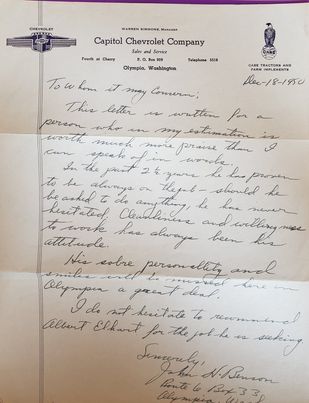 CHEVROLET
WARREN SIMMONS, MANAGER
Capitol Chevrolet Company
Sales and Service
Fourth at Cherry P. O. Box 909 Telephone 5518
Olympia, Washington
CASE
CASE TRACTORS AND
FARM IMPLEMENTS
Dec-18-1950
To Whom it may Concern;
This letter is written for a
person who in my estimation is
worth much more praise than I
can speak of in words.
In the past 2½ years he has proven
to be always on the job - should he
be asked to do anything, he has never
hesitated, Cleanliness and willingness
to work has always been his
attitude.
His sobre personallity and
smiles will be missed here in
Olympia a great deal.
I do not hesitate to recommend
Albert Elkhart for the job he is seeking.
Sincerely,
John H. Benson
Route 6 Box 33
Olympia